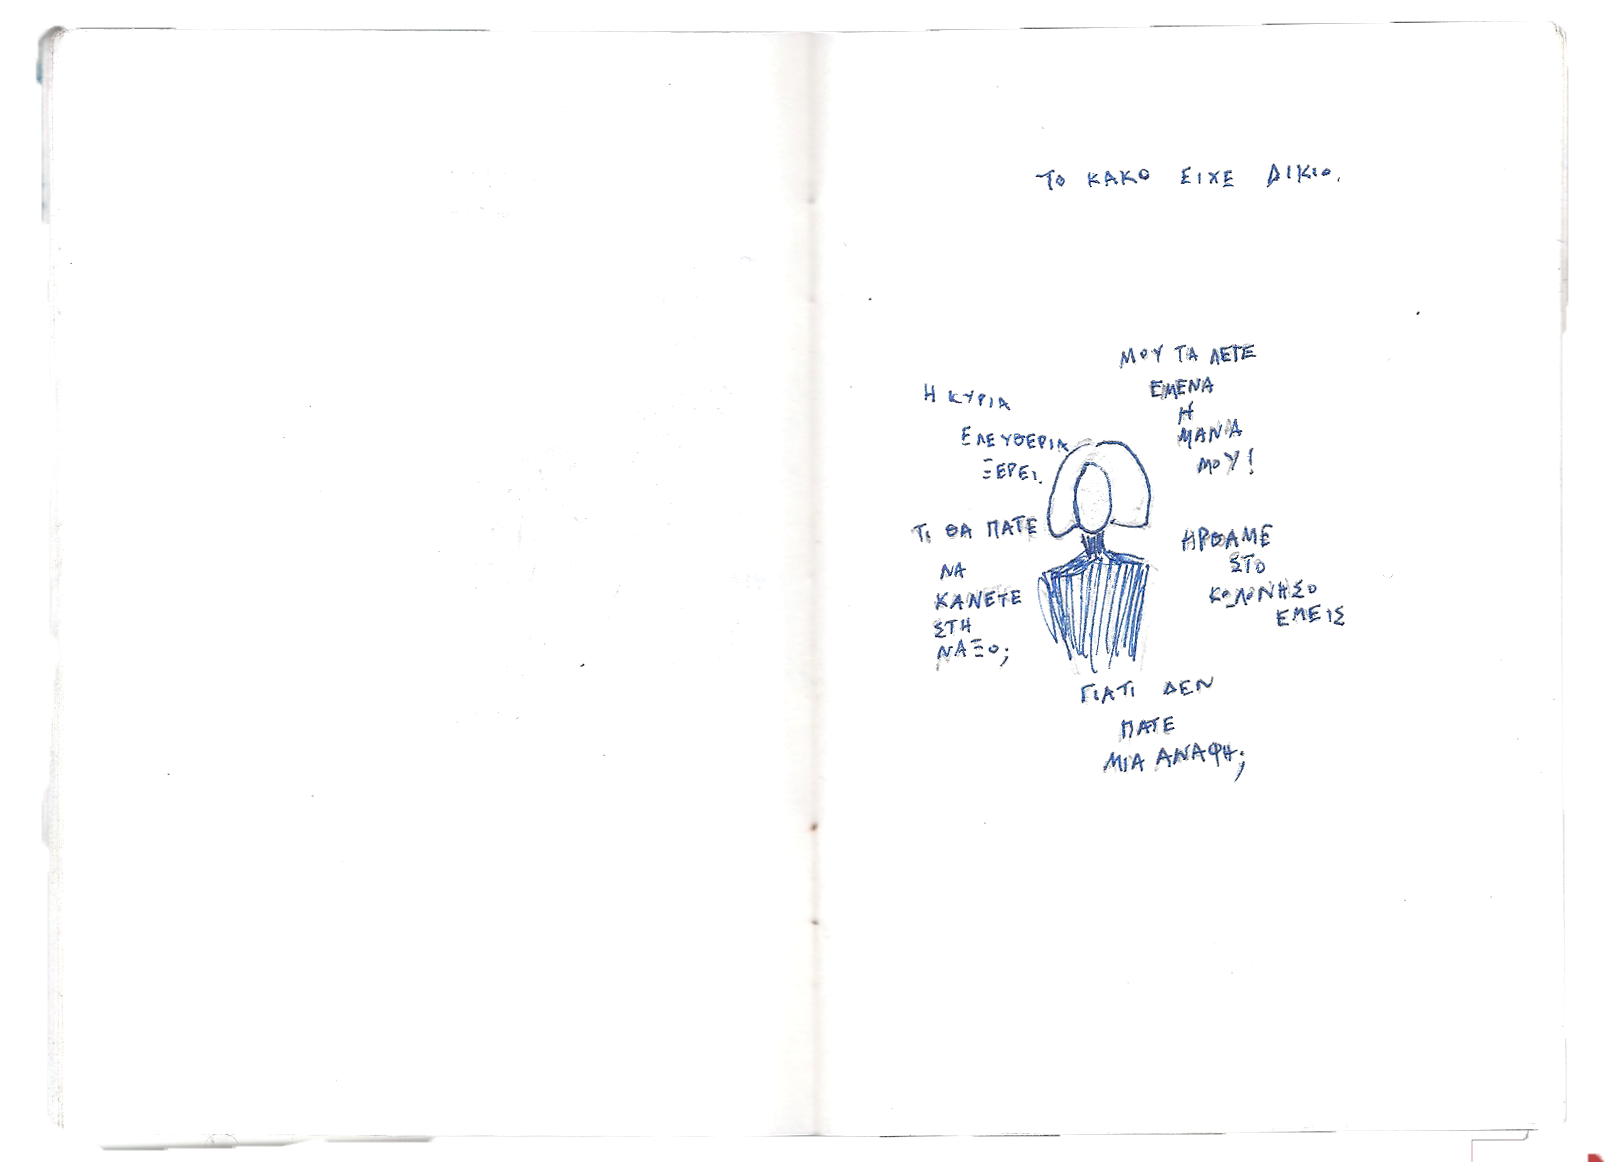 ΤΟ ΚΑΚΟ ΕΙΧΕ ΔΙΚΙΟ.
Η ΚΥΡΙΑ
ΕΛΕΥΘΕΡΙΑ
ΞΕΡΕΙ.
ΜΟΥ ΤΑ ΛΕΤΕ
ΕΜΕΝΑ
Η
ΜΑΝΑ
ΜΟΥ!
ΤΙ ΘΑ ΠΑΤΕ
ΝΑ
ΚΑΝΕΤΕ
ΣΤΗ
ΝΑΞΟ;
ΗΡΘΑΜΕ
ΣΤΟ
ΚΩΛΟΝΗΣΟ
ΕΜΕΙΣ
ΓΙΑΤΙ ΔΕΝ
ΠΑΤΕ
ΜΙΑ ΑΝΑΦΗ;